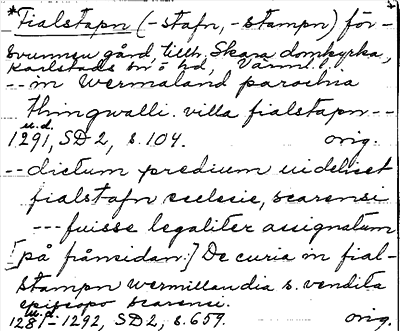 *Fialstapn (-stafn, -stampn) för-
svunnen gård, tillh. Skara domkyrka,
Karlstads hd, Värml. l.
-- in Wermaland parochia
thingwalli. villa fialstapn --
u.d.
1291, SD 2, s. 104. orig.
-- dictum predium uidelicet
fialstafn ecclesie, scarensi
--- fuisse legaliter assignatum
[på frånsidan:] De curia in fial-
stampn wermillandia s. vendita
episcopo scarensi.
u.d.
1281-1292, SD 2, s. 659. orig.